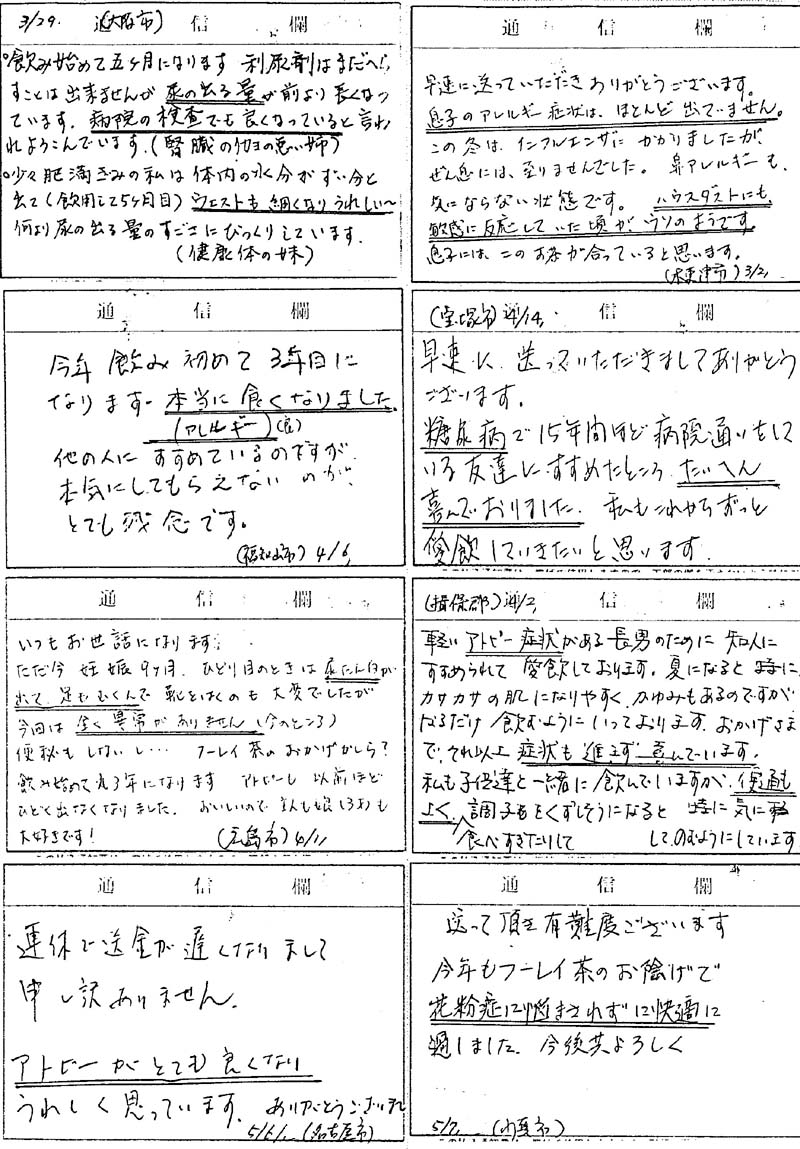 3/29. (大阪市) 通信欄
飲み始めて五ヶ月になります 利尿剤はまだへら
すことは出来ませんが尿の出る量が前より長くなっ
ています。病院の検査でも良くなっていると言わ
れよろこんでいます。(腎臓の悪い姉)
少々肥満ぎみの私は体内の水分がずい分と
出て(飲用して5ヶ月目)ウェストも細くなりうれしい〜
何より尿の出る量のすごさにびっくりしています。
(健康体の妹)
早速に送っていただきありがとうございます。
息子のアレルギー症状は、ほとんど出ていません。
この冬は、インフルエンザにかかりましたが、
ぜん息には、至りませんでした。鼻アレルギーも、
気にならない状態です。ハウスダストにも、
敏感に反応していた頃が、ウソのようです。
息子には、このお茶が合っていると思います。
(木更津市) 3/2
通信欄
今年飲み初めて3年目に
なります。本当に良くなりました
(アレルギー)
他の人にすすめているのですが
本気にしてもらえないのが、
とても残念です。
(福知山市) 4/6
(宝塚市) 4/14 通信欄
早速に送っていただきましてありがとう
ございます。
糖尿病で15年間ほど病院通いをして
いる友達にすすめたところ、たいへん
喜んでおりました。私もこれからずっと
愛飲していきたいと思います。
通信欄
いつもお世話になります。
ただ今妊娠9ヶ月。ひとり目のときは尿たん白が
出て、足もむくんで靴をはくのも大変でしたが
今回は全く異常がありません(今のところ)
便秘もしないし… フーレイ茶のおかげかしら?
飲み始めて丸3年になります アトピーも以前ほど
ひどく出なくなりました。おいしいので主人も娘(3才)も
大好きです!
(広島市) 4/11
(揖保郡) 4/2 通信欄
軽いアトピー症状がある長男のために知人に
すすめられて愛飲しております。夏になると時に、
カサカサの肌になりやすく、かゆみもあるのですが
なるだけ飲むようにいっております。おかげさま
で、それ以上症状も進まず喜んでいます。
私も子供達と一緒に飲んでいますが、便通も
よく、調子もくずしそうになると 時に気に
食べすぎたりして してのむようにしています
通信欄
連休で送金が遅くなりまして
申し訳ありません。
アトピーがとても良くなり
うれしく思っています。ありがとうございました
5/6 (名古屋市)
通信欄
送って頂き有難度ございます
今年もフーレイ茶のお陰げで
花粉症に悩まされずに快適に
過しました。今後共よろしく
5/7